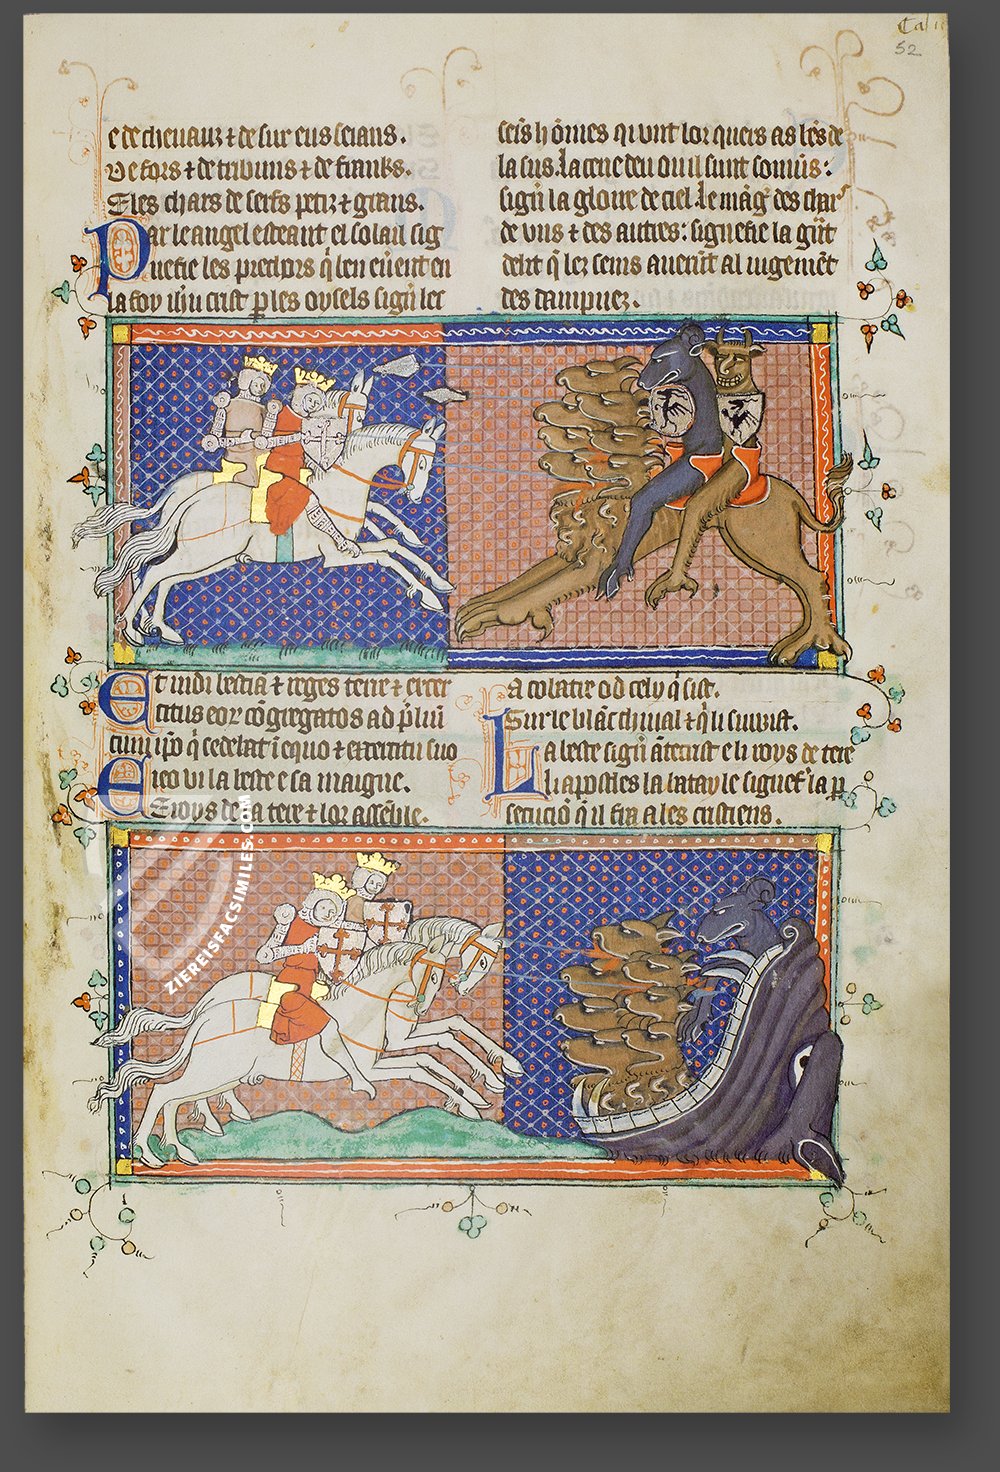 Cal
52
e de cheuauz ⁊ de sur eus seians.
De fors ⁊ de tribuns ⁊ de franks.
E les chars de serfs petiz ⁊ grans.
Par le angel esteant el solail sig
nefie les prechors q̄ len
la foy ihu crist p les oysels signi
seis hōmes qi vnt lor
la sus. la cene deu ou il sunt
signi la gloire de ciel. le māg des char
de vns ⁊ des autres: signefie la
delit q̄ lez seins auerūt al iugemēt
des dampnez.
Et uidi bestia ⁊ reges terre ⁊ exer
citus eor cōgregatos ad
cum ipo q̄ sedebat ī equo ⁊ exercitu suo
E ieo vi la beste e sa maigne.
E roys de la tere ⁊ lor assēble.
a cōbatre od cely q̄ sist.
Sur le blāc chiual ⁊ q̄ li suiuist.
La beste signi ātecrist e li roys de tere
li apostles la batayle signef la p
secuciō q̄ il fra a les cristiens.
ZIEREISFACSIMILES.COM